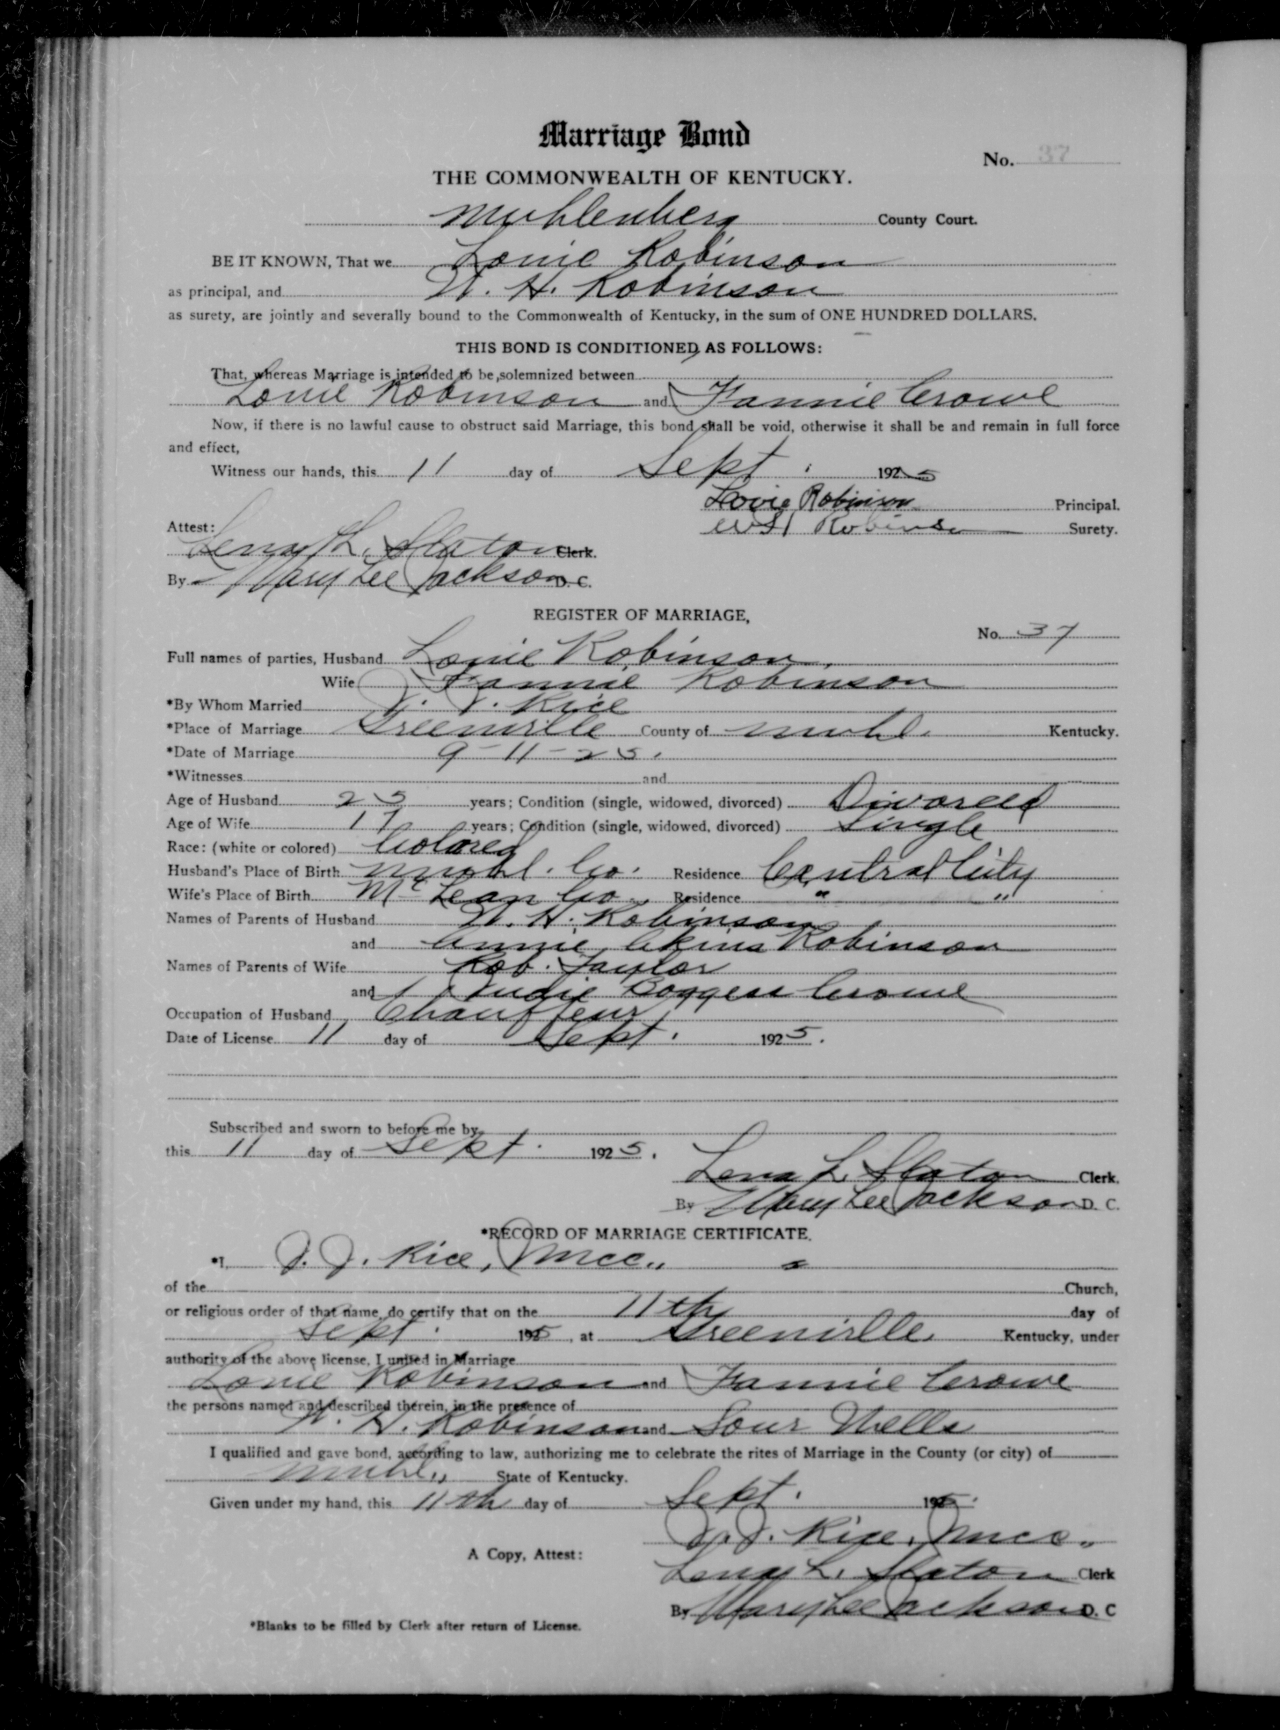 Marriage Bond
No. 37
THE COMMONWEALTH OF KENTUCKY.
Muhlenberg County Court.
BE IT KNOWN, That we Louie Robinson
as principal, and W. H. Robinson
as surety, are jointly and severally bound to the Commonwealth of Kentucky, in the sum of ONE HUNDRED DOLLARS.
THIS BOND IS CONDITIONED AS FOLLOWS:
That, whereas Marriage is intended to be solemnized between
Louie Robinson and Fannie Crowe
Now, if there is no lawful cause to obstruct said Marriage, this bond shall be void, otherwise it shall be and remain in full force
and effect,
Witness our hands, this 11 day of Sept. 1925
Louie Robinson Principal.
WH Robinson Surety.
Attest:
Lena L. Slaton Clerk.
By Mary Lee Jackson D. C.
REGISTER OF MARRIAGE,
No. 37
Full names of parties, Husband Louie Robinson.
Wife Fannie Robinson
*By Whom Married J. J. Rice
*Place of Marriage Greenville County of Muhl. Kentucky.
*Date of Marriage 9-11-25.
*Witnesses and
Age of Husband 25 years; Condition (single, widowed, divorced) Divorced
Age of Wife 17 years; Condition (single, widowed, divorced) Single
Race: (white or colored) Colored
Husband's Place of Birth Muhl. Co. Residence Central City
Wife's Place of Birth McLean Co. Residence " "
Names of Parents of Husband W. H. Robinson
and Annie Akins Robinson
Names of Parents of Wife Rob. Taylor
and Boggess Crowe
Occupation of Husband Chauffeur
Date of License 11 day of Sept. 1925.
Subscribed and sworn to before me by
this 11 day of Sept. 1925.
Lena L. Slaton Clerk.
By Mary Lee Jackson D. C.
*RECORD OF MARRIAGE CERTIFICATE.
*I, J. J. Rice, JMCC.,
of the Church,
or religious order of that name, do certify that on the 11th day of
Sept. 1925, at Greenville, Kentucky, under
authority of the above license, I united in Marriage
Louie Robinson and Fannie Crowe
the persons named and described therein, in the presence of
W. H. Robinson and Wells
I qualified and gave bond, according to law, authorizing me to celebrate the rites of Marriage in the County (or city) of
Muhl., State of Kentucky.
Given under my hand, this 11th day of Sept. 1925.
J. J. Rice, JMCC.,
A Copy, Attest:
Lena L. Slaton Clerk
By Mary Lee Jackson D. C
*Blanks to be filled by Clerk after return of License.